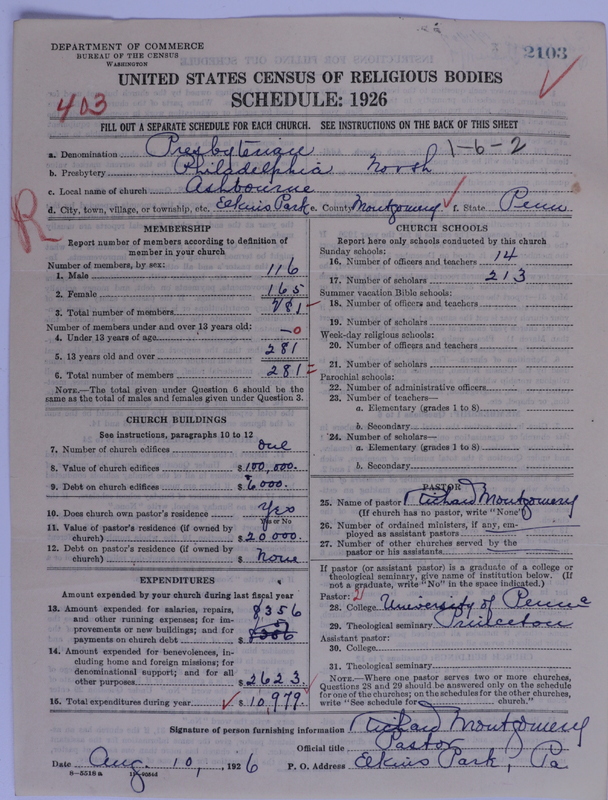 DEPARTMENT OF COMMERCE
BUREAU OF THE CENSUS
WASHINGTON
2103
UNITED STATES CENSUS OF RELIGIOUS BODIES
SCHEDULE: 1926
403
FILL OUT A SEPARATE SCHEDULE FOR EACH CHURCH. SEE INSTRUCTIONS ON THE BACK OF THIS SHEET
a. Denomination Presbyterian 1-6-2
b. Presbytery Philadelphia North
c. Local name of church Ashbourne
d. City, town, village, or township, etc. Elkins Park e. County Montgomery f. State Penn
R
MEMBERSHIP
Report number of members according to definition of member in your church
Number of members, by sex:
1. Male 116
2. Female 165
3. Total number of members 281
Number of members under and over 13 years old:
4. Under 13 years of age —0
5. 13 years old and over 281
6. Total number of members 281
NOTE.—The total given under Question 6 should be the same as the total of males and females given under Question 3.
CHURCH BUILDINGS
See instructions, paragraphs 10 to 12
7. Number of church edifices one
8. Value of church edifices $100,000.
9. Debt on church edifices $6000.
10. Does church own pastor's residence? Yes
Yes or No
11. Value of pastor's residence (if owned by church) $20000.
12. Debt on pastor's residence (if owned by church) $ None
EXPENDITURES
Amount expended by your church during last fiscal year
13. Amount expended for salaries, repairs, and other running expenses; for improvements or new buildings; and for payments on church debt 8356
$8356
14. Amount expended for benevolences, including home and foreign missions; for denominational support; and for all other purposes $2623
15. Total expenditures during year $10,979
CHURCH SCHOOLS
Report here only schools conducted by this church
Sunday schools:
16. Number of officers and teachers 14
17. Number of scholars 213
Summer vacation Bible schools:
18. Number of officers and teachers
19. Number of scholars
Week-day religious schools:
20. Number of officers and teachers
21. Number of scholars
Parochial schools:
22. Number of administrative officers
23. Number of teachers—
a. Elementary (grades 1 to 8)
b. Secondary
24. Number of scholars—
a. Elementary (grades 1 to 8)
b. Secondary
PASTOR
25. Name of pastor Richard Montgomery
(If church has no pastor, write "None")
26. Number of ordained ministers, if any, employed as assistant pastors
27. Number of other churches served by the pastor or his assistants
If pastor (or assistant pastor) is a graduate of a college or theological seminary, give name of institution below. (If not a graduate, write "No" in the space indicated.)
Pastor: 2
28. College University of Penna
29. Theological seminary Princeton
Assistant pastor:
30. College
31. Theological seminary
NOTE.—Where one pastor serves two or more churches, Questions 28 and 29 should be answered only on the schedule for one of the churches; on the schedules for the other churches, write "See schedule for church."
Signature of person furnishing information Richard Montgomery
Official title Pastor
Date Aug. 10, 1926 P. O. Address Elkins Park, Pa
8—5518 a